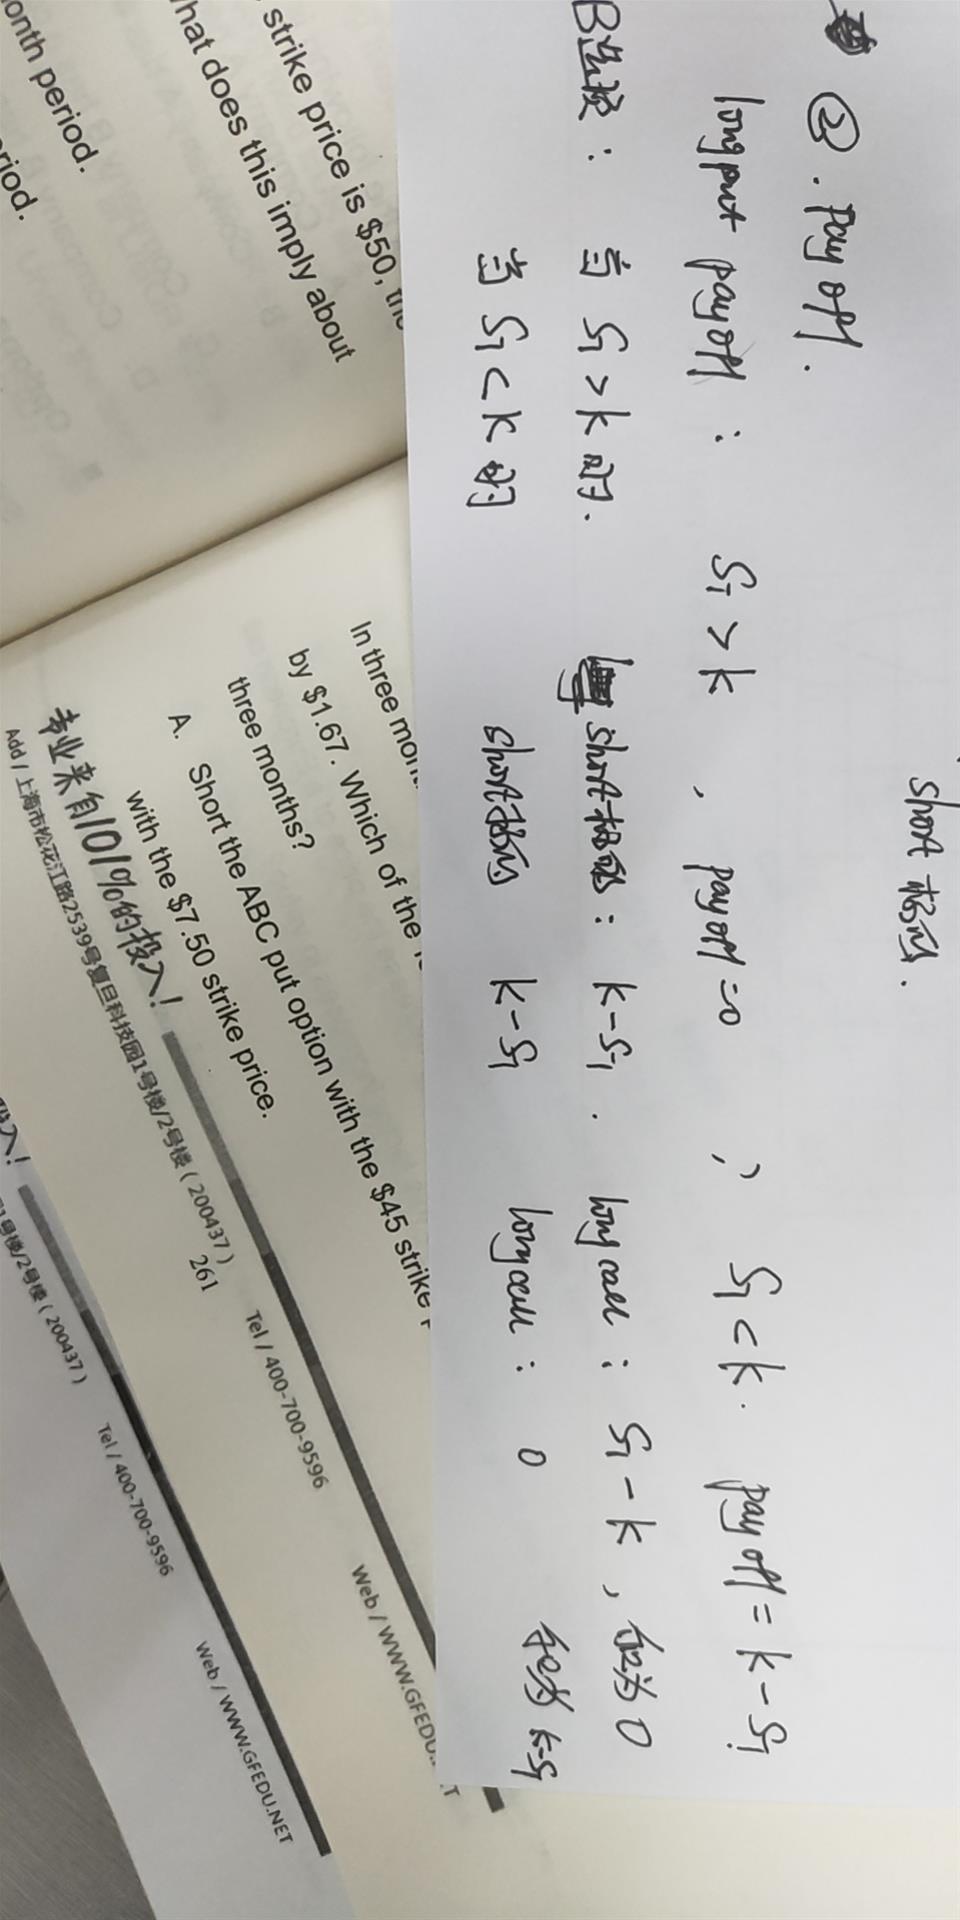 short 标的.
② . pay off.
long put payoff : ST > k , payoff =0 , ST < k. payoff = k - ST
B选项 : 当 ST > k 时. short 标的 : k - ST . long call : ST - k , 和为 0
当 ST < k 时 short标的 k - ST long call : 0 和为 k-ST
strike price is $50, the
hat does this imply about
onth period.
riod.
In three mon
by $1.67. Which of the
three months?
A. Short the ABC put option with the $45 strike
with the $7.50 strike price.
专业来自101%的投入!
Add / 上海市松花江路2539号复旦科技园1号楼/2号楼 ( 200437 ) Tel / 400-700-9596 Web / WWW.GFEDU.
T
261
投入!
1号楼/2号楼 ( 200437 ) Tel / 400-700-9596 Web / WWW.GFEDU.NET